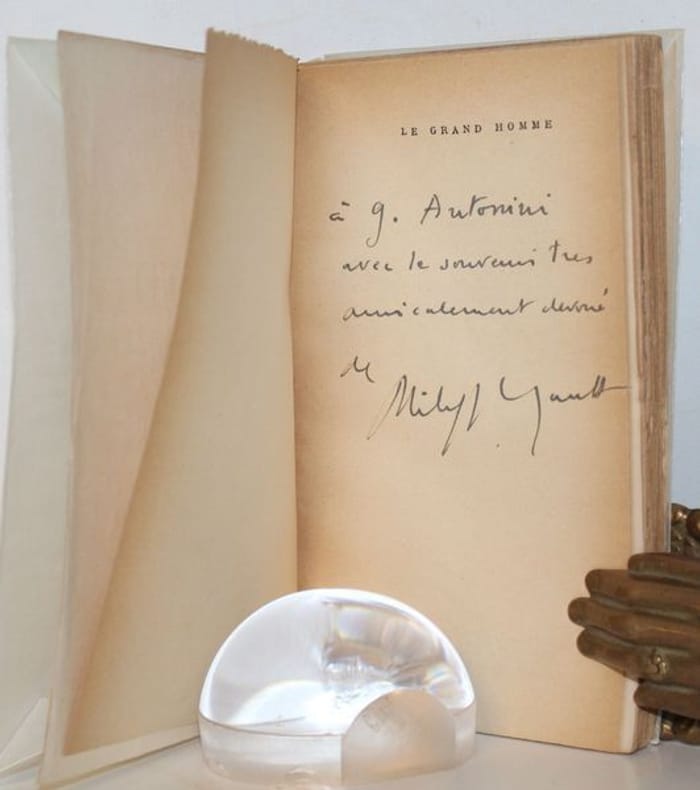 LE GRAND HOMME
à G. Antonini
avec le souvenir très
amicalement dévoué
de